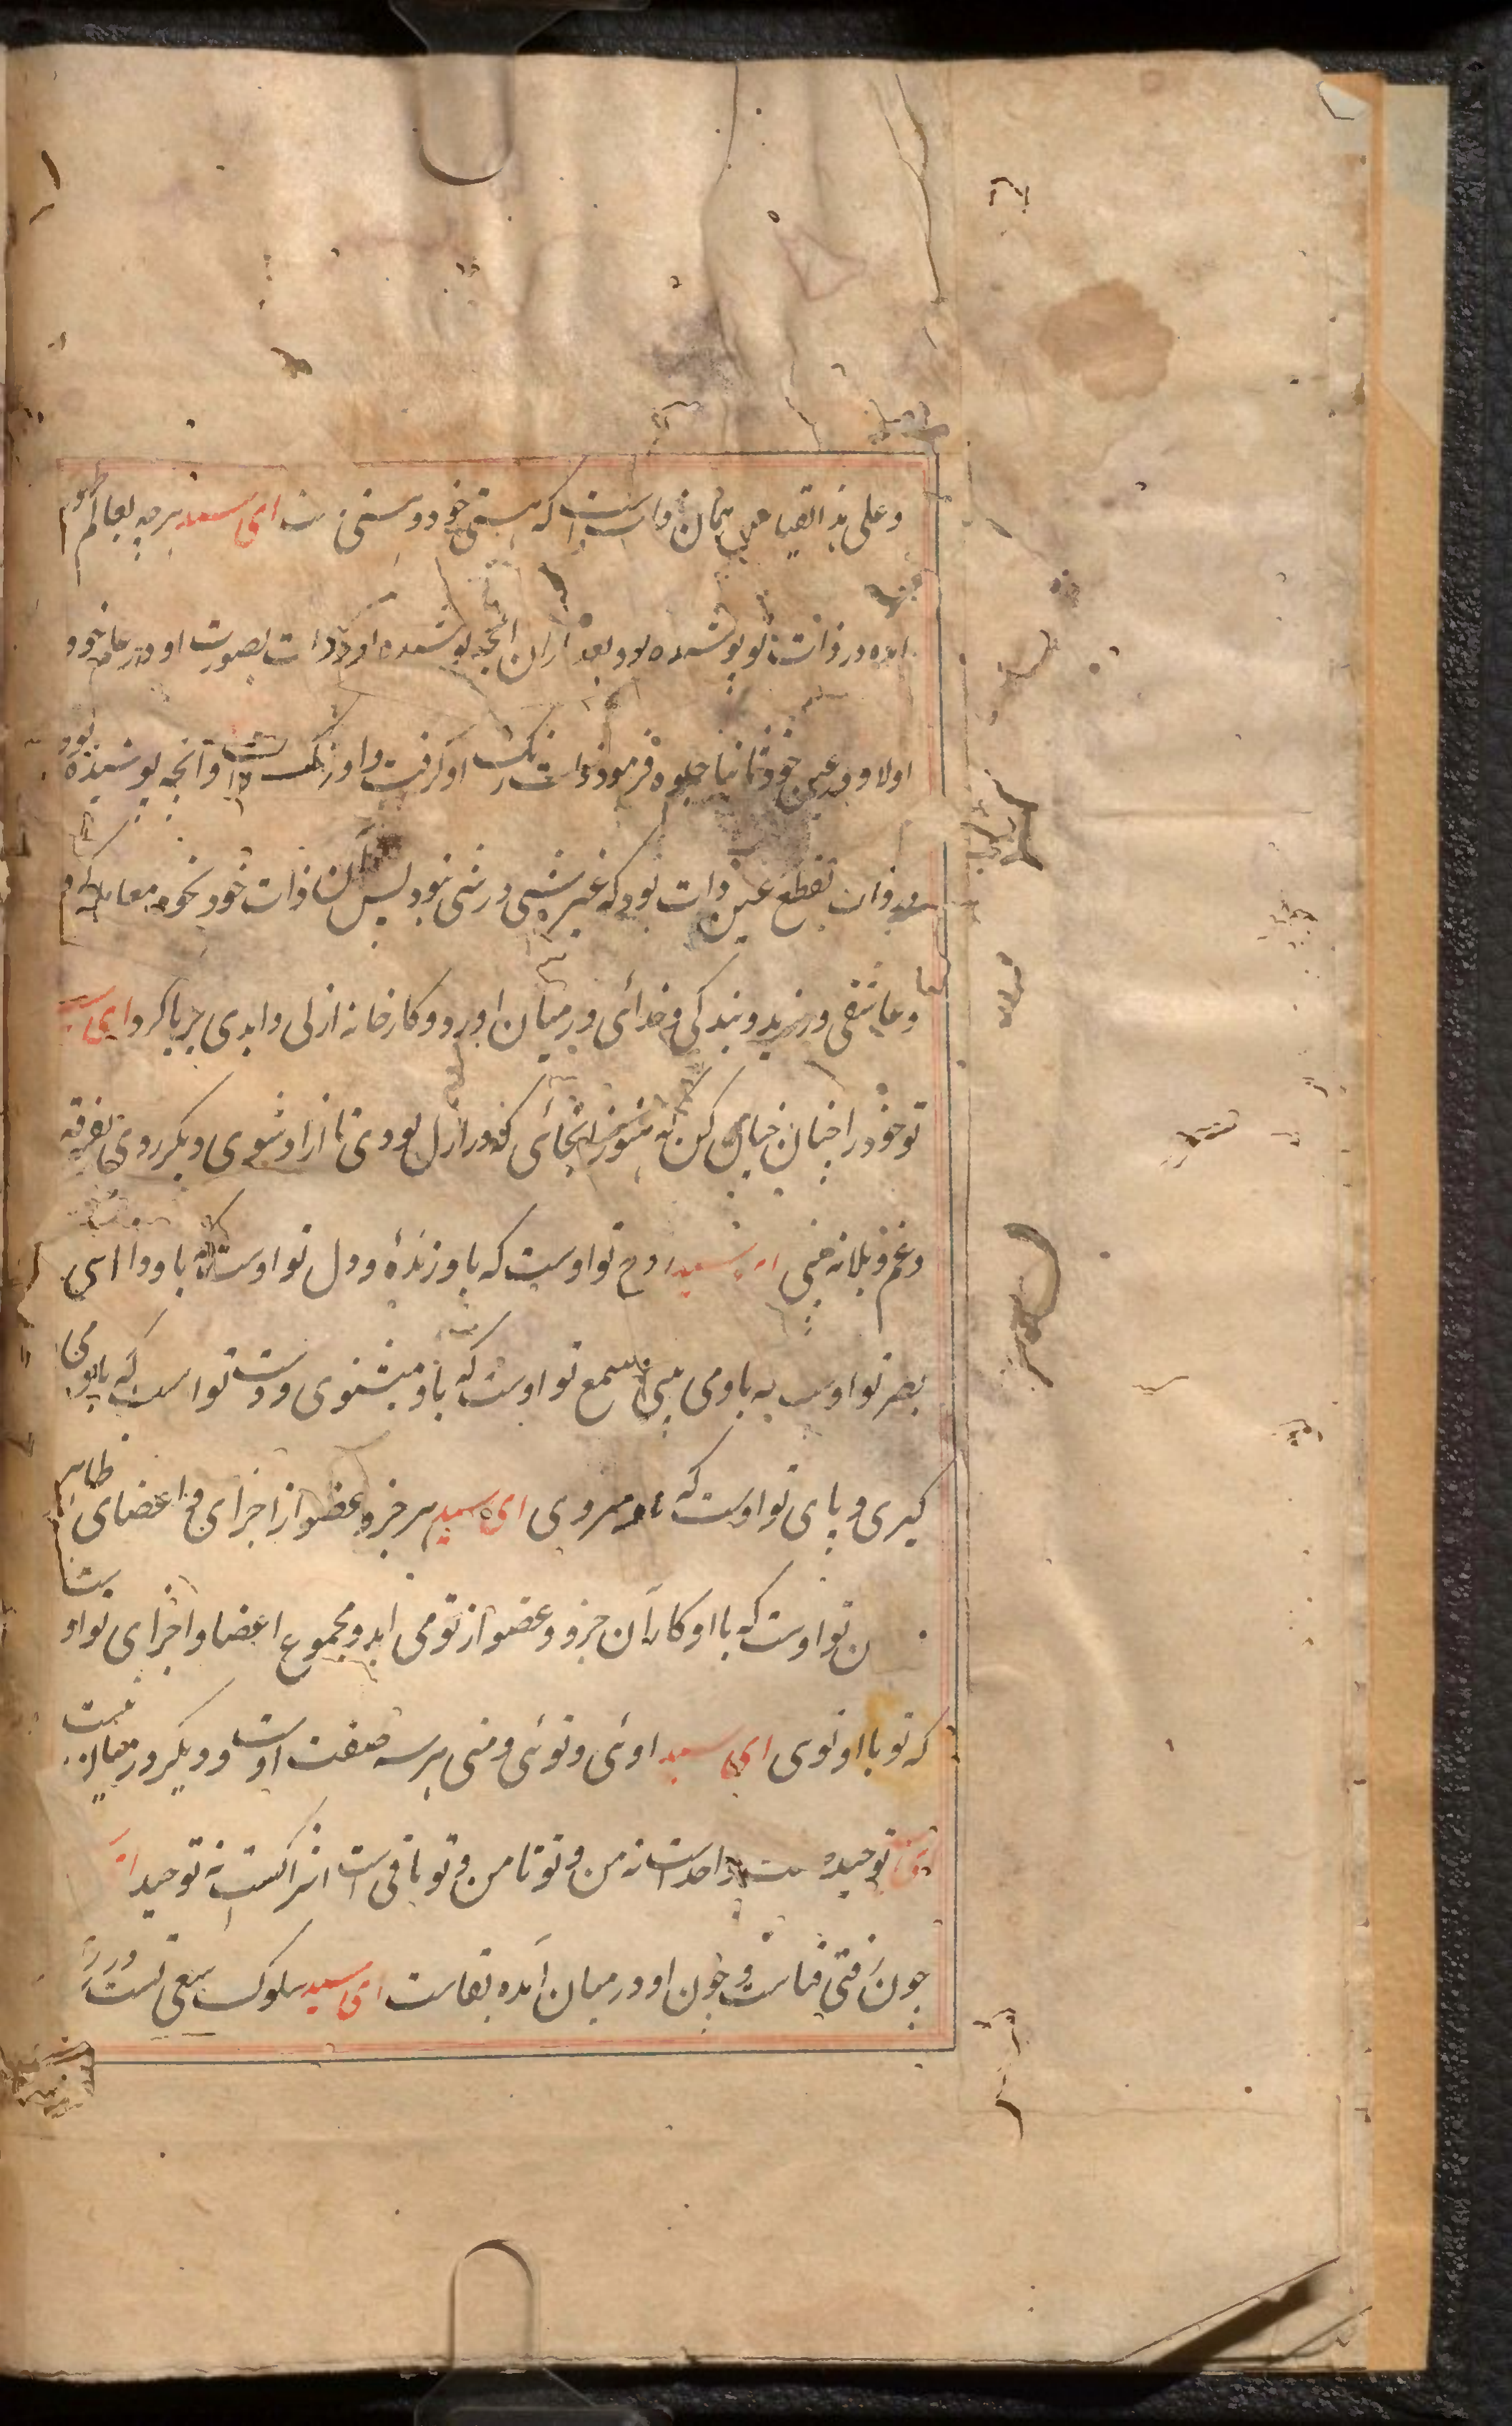 وعلی هذا القیاس همان ذات است که هستی خود و هستی ای سید هرچه بعالم ظهور
آمده در ذات او پوشیده بود بعد ازان آنچه پوشیده بود ذات بصورت او در علم خود
اولا و در عین خود ثانیا جلوه فرمود ذات رنگ او گرفت و او رنگ ذات و آنچه پوشیده بود
در ذات بقطع عین ذات بود که غیر شیی در شی نبود پس آن ذات خود بخود معامله کرد
و عاشقی ورزید و بندکی و خدائی درمیان اورد و کارخانه ازلی و ابدی برپا کرد ای سید
تو خود را چنان خیال کن که هنوز انجائی که در ازل بودی تا ازاد شوی و دیکر روی تفرقه
و غم و بلا نه بینی ای سید روح تو اوست که باو زندهٔ و دل تو اوست که باو دانی
بصر تو اوست که باو می بینی سمع تو اوست که باو میشنوی و دست تو اوست که باو می
کیری و پای تو اوست که باو میروی ای سید هر جزو و عضو از اجزای و اعضای ظاهر
ن تو اوست که با او کار آن جزو و عضو از تو می اید و مجموع اعضا و اجزای تو اوست
که تو با او توی ای سید اوئی و توئی و منی هرسه صفت اوست و دیکر درمیان نیست
توحید واحد است نه من و تو تا من و تو باقی است اشراکست نه توحید ای
چون رفتی فناست و چون او درمیان آمده بقاست ای سید سلوک سعی تست در